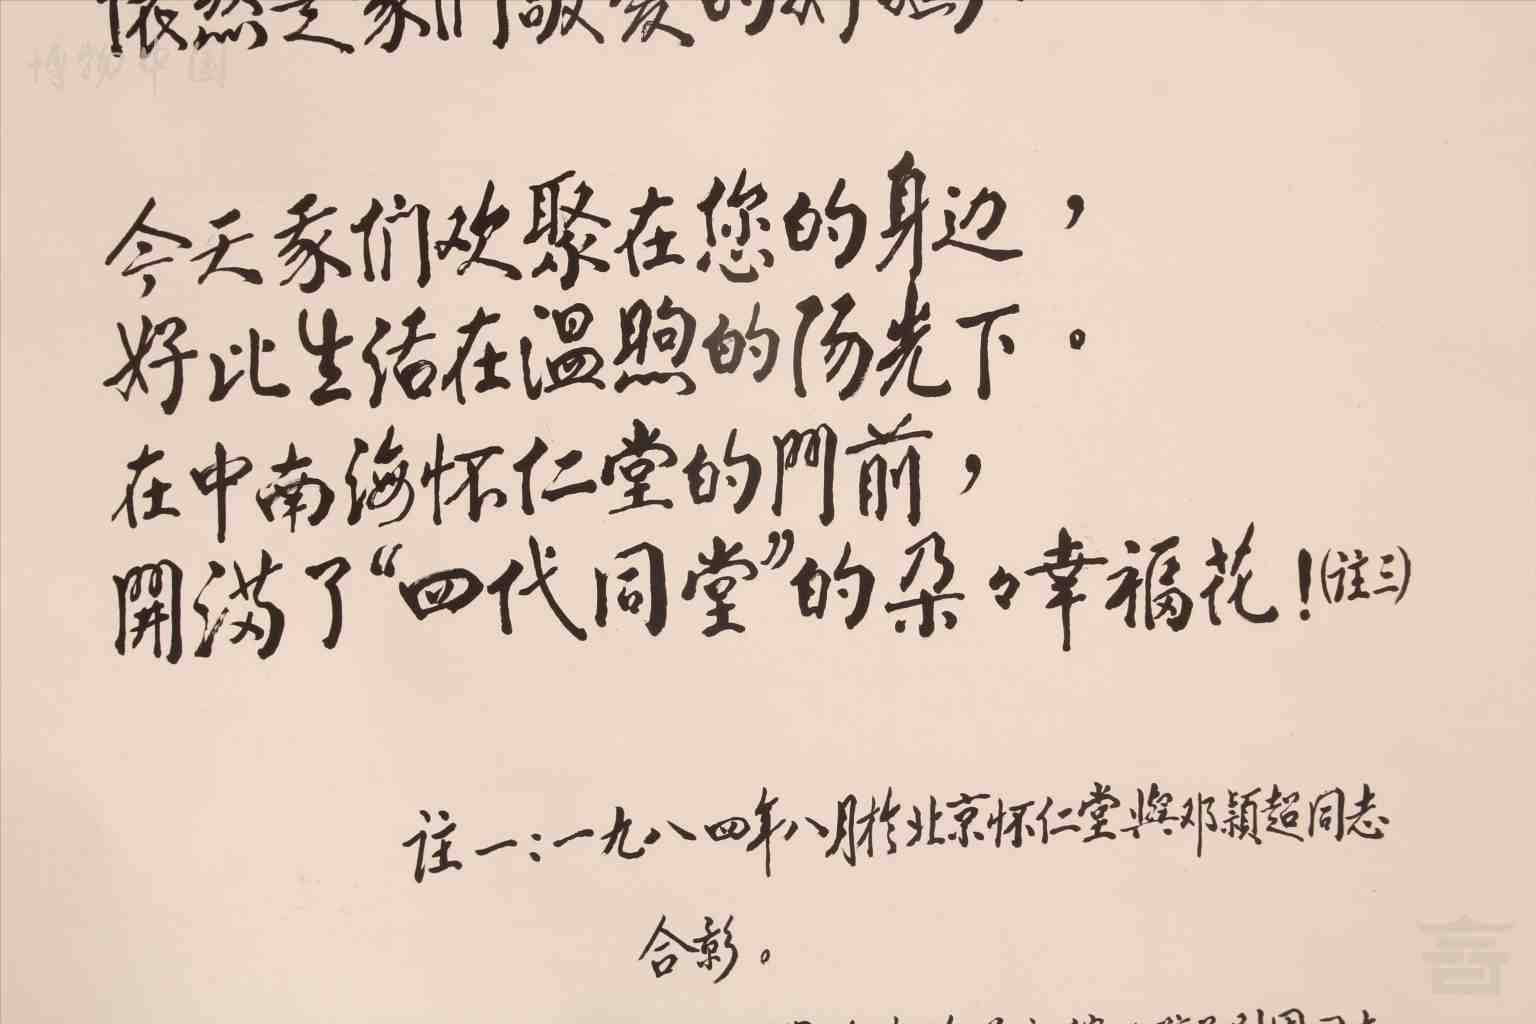 依然是我们敬爱的妈妈
博物中国
今天我们欢聚在您的身边，
好比生活在温煦的阳光下。
在中南海怀仁堂的門前，
開满了“四代同堂”的朵々幸福花！(註三)
註一：一九八四年八月於北京怀仁堂與邓颖超同志
合影。